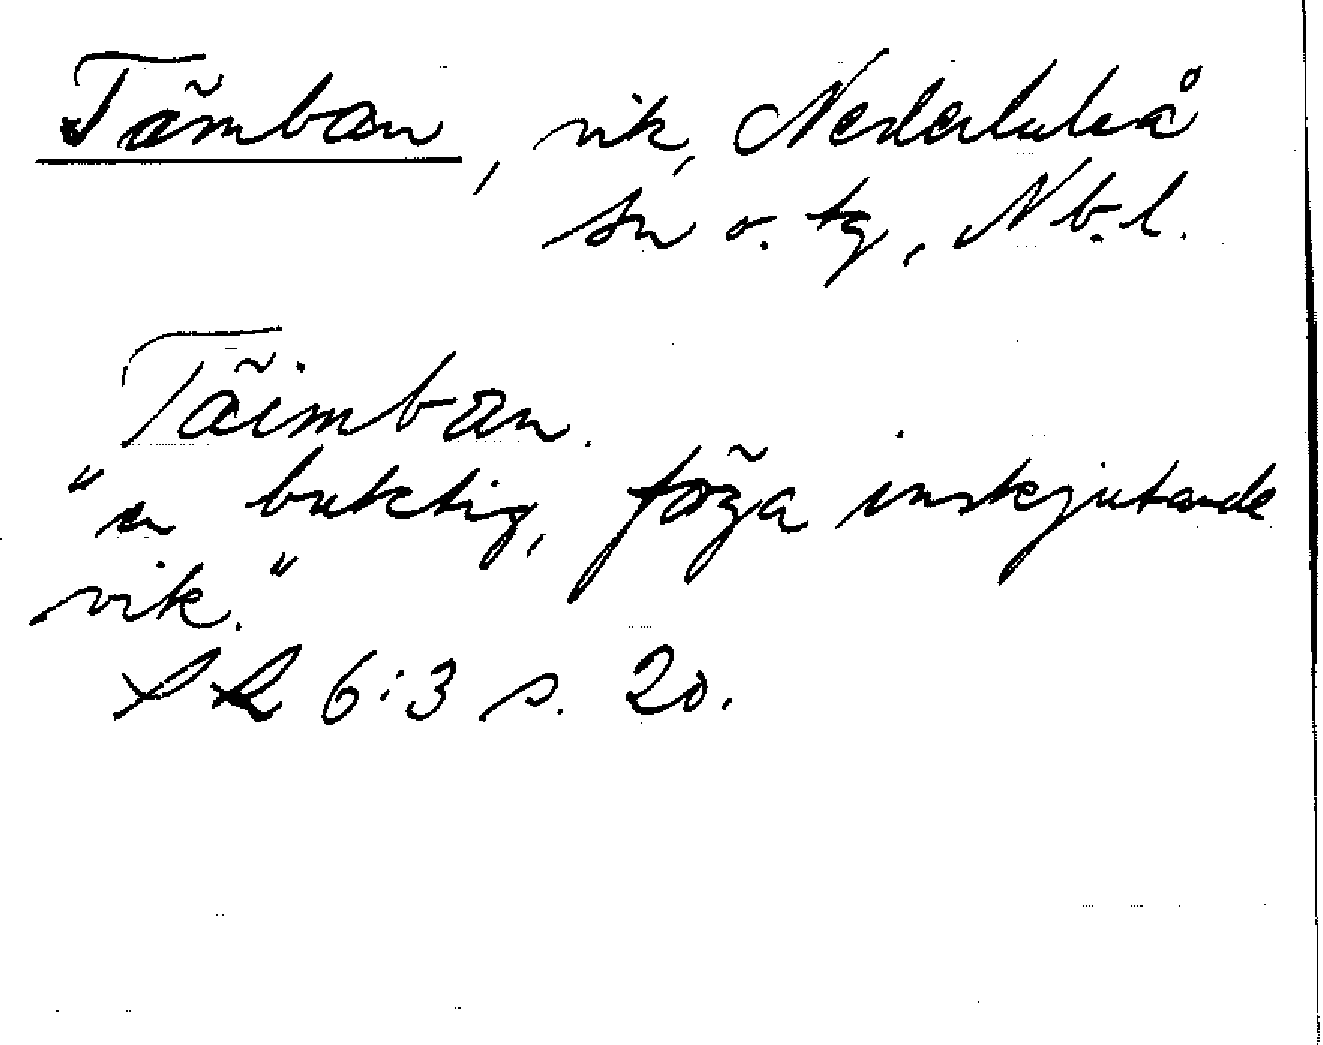 Tämban, vik, Nederluleå
sn o. tg, Nb.l.
Täimban.
"en buktig, föga inskjutande
vik."
SR 6:3 s. 20.